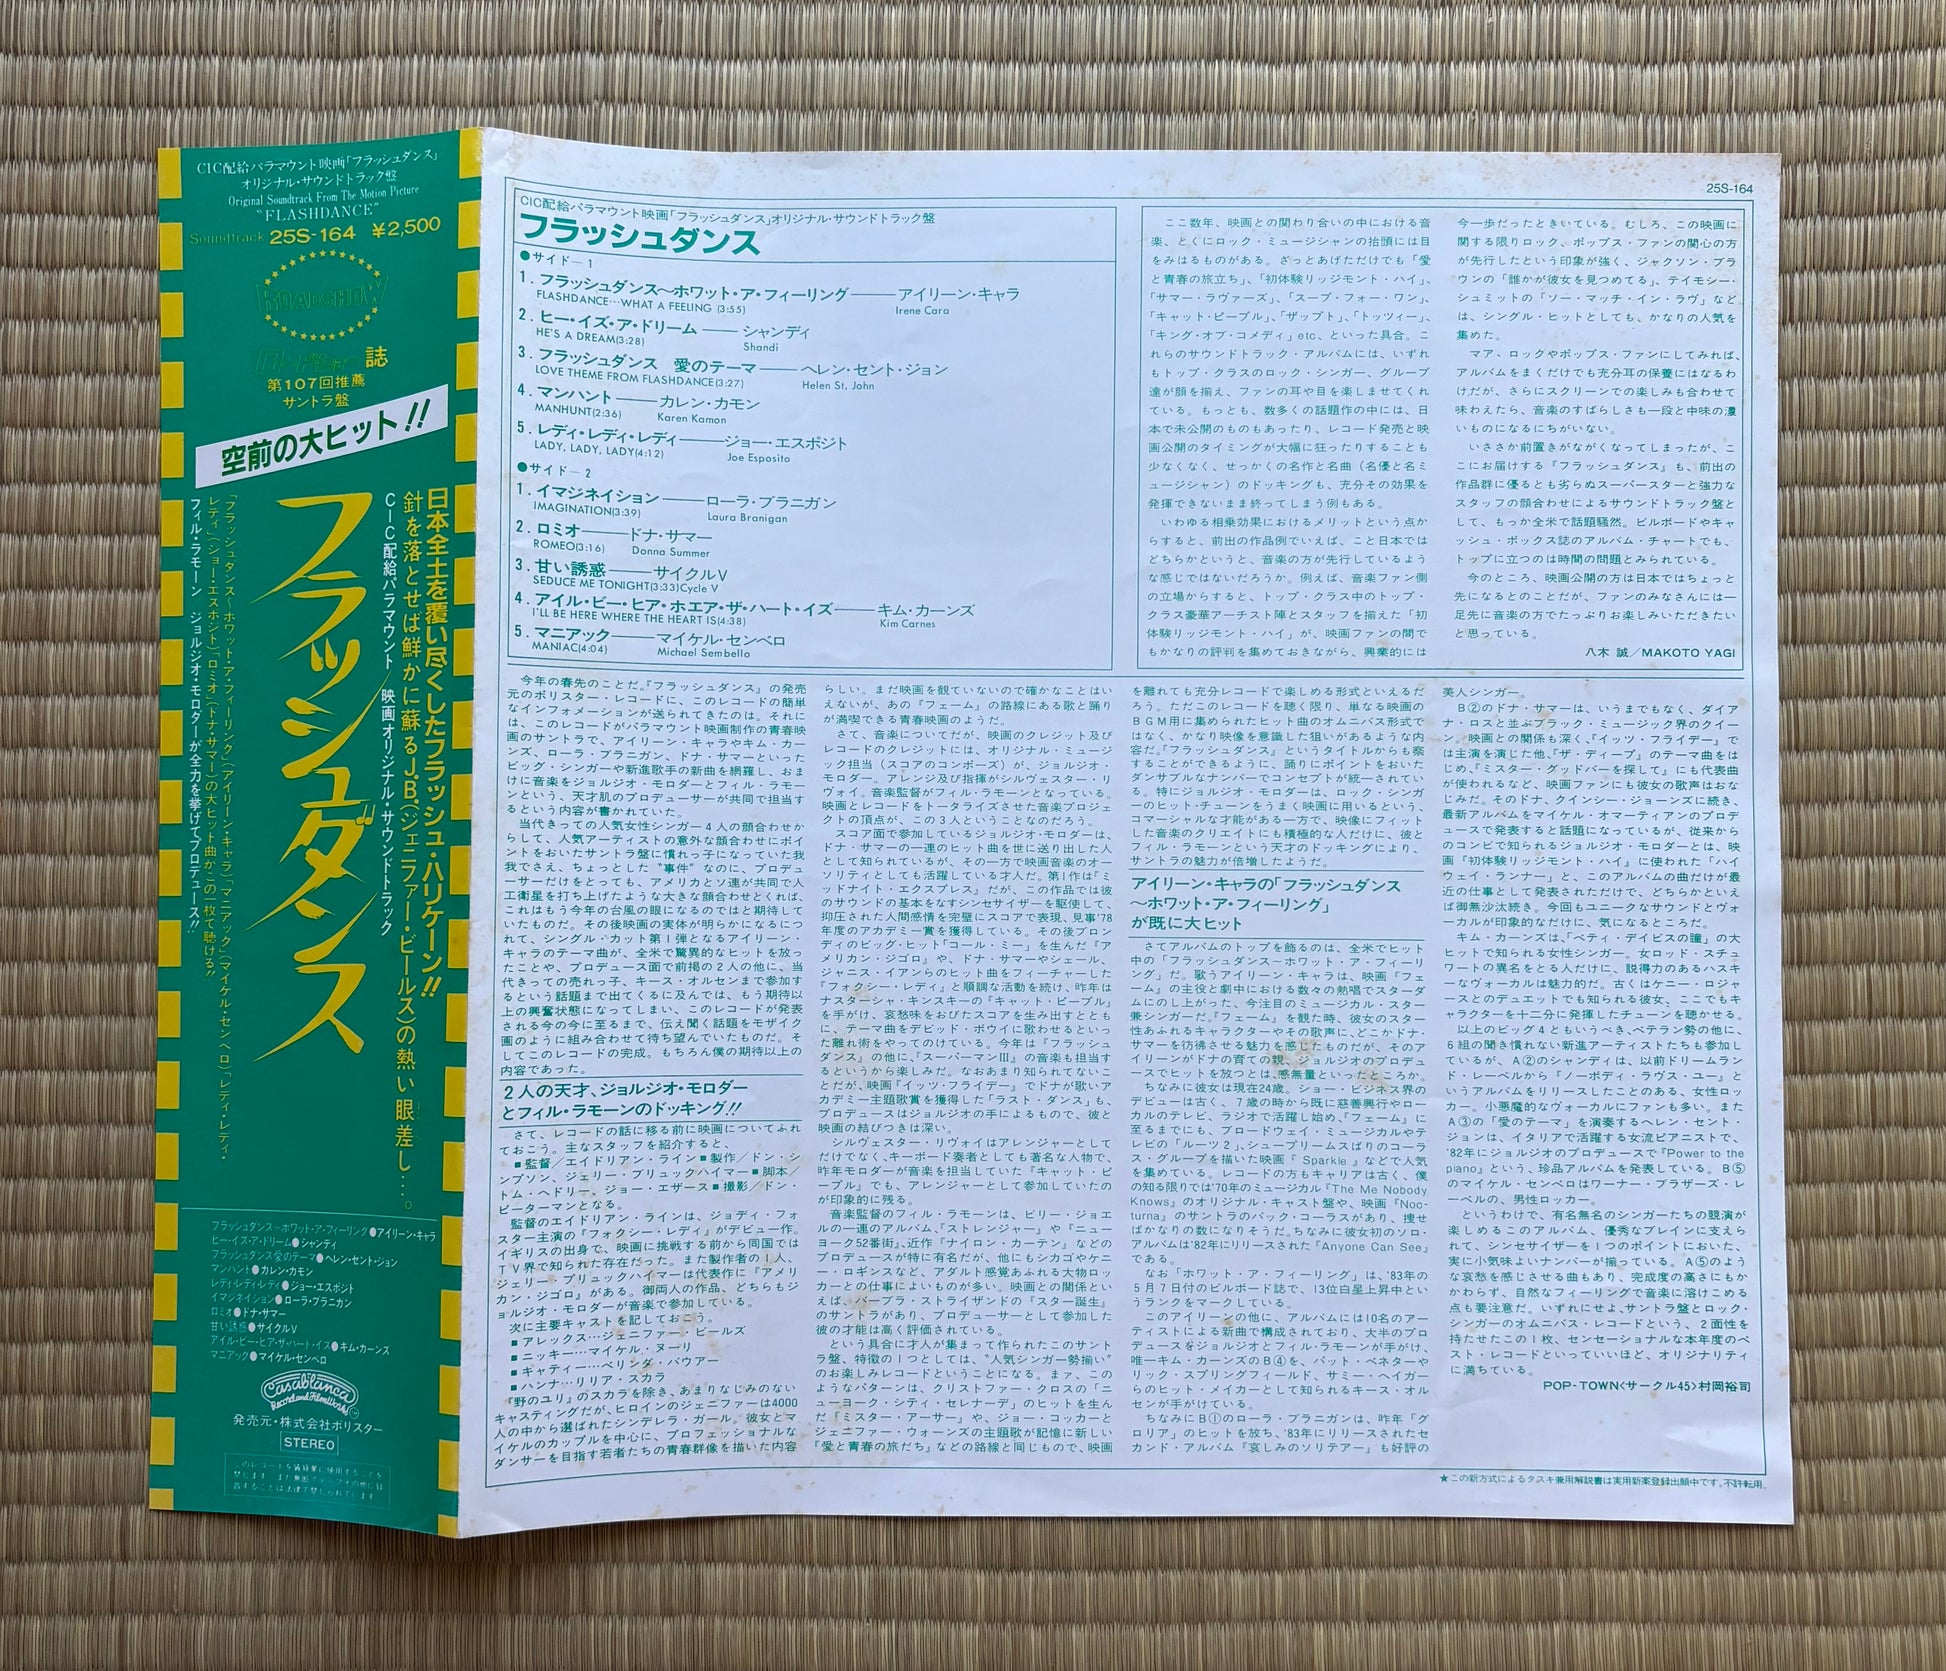 CIC配給パラマウント映画「フラッシュダンス」
オリジナル・サウンドトラック盤
Original Soundtrack From The Motion Picture
“FLASHDANCE”
Soundtrack 25S-164 ¥2,500
ROADSHOW
ロードショー誌
第107回推薦
サントラ盤
空前の大ヒット!!
日本全土を覆い尽くしたフラッシュ・ハリケーン!!
針を落とせば鮮かに甦るJ.B.(ジェニファー・ビールス)の熱い眼差し…。
CIC配給パラマウント/映画オリジナル・サウンドトラック
フラッシュダンス
「フラッシュダンス〜ホワット・ア・フィーリング」(アイリーン・キャラ)「マニアック」(マイケル・センベロ)「レディ・レディ・
レディ」(ジョー・エスポジト)「ロミオ」(ドナ・サマー)の大ヒット曲がこの一枚で聴ける!!
フィル・ラモーン ジョルジオ・モロダーが全力を挙げてプロデュース!!
フラッシュダンス〜ホワット・ア・フィーリング●アイリーン・キャラ
ヒー・イズ・ア・ドリーム●シャンディ
フラッシュダンス愛のテーマ●ヘレン・セント・ジョン
マンハント●カレン・カモン
レディ・レディ・レディ●ジョー・エスポジト
イマジネイション●ローラ・ブラニカン
ロミオ●ドナ・サマー
甘い誘惑●サイクルV
アイル・ビー・ヒア・ホエア・ザ・ハート・イズ●キム・カーンズ
マニアック●マイケル・センベロ
Casablanca
Record and FilmWorks
発売元・株式会社ポリスター
STEREO
25S-164
CIC配給パラマウント映画「フラッシュダンス」オリジナル・サウンドトラック盤
フラッシュダンス
●サイド－1
1. フラッシュダンス〜ホワット・ア・フィーリング───アイリーン・キャラ
FLASHDANCE…WHAT A FEELING (3:55) Irene Cara
2. ヒー・イズ・ア・ドリーム───シャンディ
HE'S A DREAM(3:28) Shandi
3. フラッシュダンス 愛のテーマ───ヘレン・セント・ジョン
LOVE THEME FROM FLASHDANCE(3:27) Helen St. John
4. マンハント───カレン・カモン
MANHUNT(2:36) Karen Kamon
5. レディ・レディ・レディ───ジョー・エスポジト
LADY, LADY, LADY(4:12) Joe Esposito
●サイド－2
1. イマジネイション───ローラ・ブラニガン
IMAGINATION(3:39) Laura Branigan
2. ロミオ───ドナ・サマー
ROMEO(3:16) Donna Summer
3. 甘い誘惑───サイクルV
SEDUCE ME TONIGHT(3:33)Cycle V
4. アイル・ビー・ヒア・ホエア・ザ・ハート・イズ───キム・カーンズ
I'LL BE HERE WHERE THE HEART IS(4:38) Kim Carnes
5. マニアック───マイケル・センベロ
MANIAC(4:04) Michael Sembello
ここ数年、映画との関わり合いの中における音
楽、とくにロック・ミュージシャンの抬頭には目
をみはるものがある。ざっとあげただけでも「愛
と青春の旅立ち」、「初体験リッジモント・ハイ」、
「サマー・ラヴァーズ」、「スープ・フォー・ワン」、
「キャット・ピープル」、「ザップト」、「トッツィー」、
「キング・オブ・コメディ」etc、といった具合。こ
れらのサウンドトラック・アルバムには、いずれ
もトップ・クラスのロック・シンガー、グループ
達が顔を揃え、ファンの耳や目を楽しませてくれ
ている。もっとも、数多くの話題作の中には、日
本で未公開のものもあったり、レコード発売と映
画公開のタイミングが大幅に狂ったりすることも
少なくなく、せっかくの名作と名曲（名優と名ミ
ュージシャン）のドッキングも、充分その効果を
発揮できないまま終ってしまう例もある。
いわゆる相乗効果におけるメリットという点か
らすると、前出の作品例でいえば、こと日本では
どちらかというと、音楽の方が先行しているよう
な感じではないだろうか。例えば、音楽ファン側
の立場からすると、トップ・クラス中のトップ・
クラス豪華アーチスト陣とスタッフを揃えた「初
体験リッジモント・ハイ」が、映画ファンの間で
もかなりの評判を集めておきながら、興業的には
今一歩だったときいている。むしろ、この映画に
関する限りロック、ポップス・ファンの関心の方
が先行したという印象が強く、ジャクソン・ブラ
ウンの「誰かが彼女を見つめてる」、テイモシー・
シュミットの「ソー・マッチ・イン・ラヴ」など
は、シングル・ヒットとしても、かなりの人気を
集めた。
マア、ロックやポップス・ファンにしてみれば、
アルバムをまくだけでも充分耳の保養にはなるわ
けだが、さらにスクリーンでの楽しみも合わせて
味わえたら、音楽のすばらしさも一段と中味の濃
いものになるにちがいない。
いささか前置きがながくなってしまったが、こ
こにお届けする『フラッシュダンス』も、前出の
作品群に優るとも劣らぬスーパースターと強力な
スタッフの顔合わせによるサウンドトラック盤と
して、もっか全米で話題騒然。ビルボードやキャ
ッシュ・ボックス誌のアルバム・チャートでも、
トップに立つのは時間の問題とみられている。
今のところ、映画公開の方は日本ではちょっと
先になるとのことだが、ファンのみなさんには一
足先に音楽の方でたっぷりお楽しみいただきたい
と思っている。
八木 誠／MAKOTO YAGI
今年の春先のことだ。『フラッシュダンス』の発売
元のポリスター・レコードに、このレコードの簡単
なインフォメーションが送られてきたのは。それに
は、このレコードがパラマウント映画制作の青春映
画のサントラで、アイリーン・キャラやキム・カー
ンズ、ローラ・ブラニガン、ドナ・サマーといった
ビッグ・シンガーや新進歌手の新曲を網羅し、おま
けに音楽をジョルジオ・モロダーとフィル・ラモー
ンという、天才肌のプロデューサーが共同で担当す
るという内容が書かれていた。
当代きっての人気女性シンガー4人の顔合わせか
らして、人気アーチストの意外な顔合わせにポイ
ントをおいたサントラ盤に慣れっ子になっていた我
我でさえ、ちょっとした“事件”なのに、プロデュ
ーサーだけをとっても、アメリカとソ連が共同で人
工衛星を打ち上げたような大きな顔合わせとくれば、
これはもう今年の台風の眼になるのではと期待して
いたものだ。その後映画の実体が明らかになるにつ
れて、シングル・カット第1弾となるアイリーン・
キャラのテーマ曲が、全米で驚異的なヒットを放っ
たことや、プロデュース面で前掲の2人の他に、当
代きっての売れっ子、キース・オルセンまで参加す
るという話題まで出てくるに及んでは、もう期待以
上の興奮状態になってしまい、このレコードが発表
される今の今に至るまで、伝え聞く話題をモザイク
画のように組み合わせて待ち望んでいたものだ。そ
してこのレコードの完成。もちろん僕の期待以上の
内容であった。
2人の天才、ジョルジオ・モロダー
とフィル・ラモーンのドッキング!!
さて、レコードの話に移る前に映画についてふれ
ておこう。主なスタッフを紹介すると、
■監督／エイドリアン・ライン■製作／ドン・シ
ンプソン、ジェリー・ブリュックハイマー■脚本／
トム・ヘドリー、ジョー・エザース■撮影／ドン・
ピーターマンとなる。
監督のエイドリアン・ラインは、ジョディ・フォ
スター主演の『フォクシー・レディ』がデビュー作。
イギリスの出身で、映画に挑戦する前から同国では
TV界で知られた存在だった。また製作者の1人、
ジェリー・ブリュックハイマーは代表作に『アメリ
カン・ジゴロ』がある。御両人の作品、どちらもジ
ョルジオ・モロダーが音楽で参加している。
次に主要キャストを記しておこう。
■アレックス…ジェニファー・ビールズ
■ニッキー…マイケル・ヌーリ
■ギャティー…ベリンダ・バウアー
■ハンナ…リリア・スカラ
『野のユリ』のスカラを除き、あまりなじみのない
キャスティングだが、ヒロインのジェニファーは4000
人の中から選ばれたシンデレラ・ガール。彼女とマ
イケルのカップルを中心に、プロフェッショナルな
ダンサーを目指す若者たちの青春群像を描いた内容
らしい。まだ映画を観ていないので確かなことはい
えないが、あの『フェーム』の路線にある歌と踊り
が満喫できる青春映画のようだ。
さて、音楽についてだが、映画のクレジット及び
レコードのクレジットには、オリジナル・ミュージ
ック担当（スコアのコンポーズ）が、ジョルジオ・
モロダー。アレンジ及び指揮がシルヴェスター・リ
ヴォイ。音楽監督がフィル・ラモーンとなっている。
映画とレコードをトータライズさせた音楽プロジェ
クトの頂点が、この3人ということなのだろう。
スコア面で参加しているジョルジオ・モロダーは、
ドナ・サマーの一連のヒット曲を世に送り出した人
として知られているが、その一方で映画音楽のオー
ソリティとしても活躍している才人だ。第1作は『ミ
ッドナイト・エクスプレス』だが、この作品では彼
のサウンドの基本をなすシンセサイザーを駆使して、
抑圧された人間感情を完璧にスコアで表現、見事'78
年度のアカデミー賞を獲得している。その後ブロン
ディのビッグ・ヒット「コール・ミー」を生んだ『ア
メリカン・ジゴロ』や、ドナ・サマーやシェール、
ジャニス・イアンらのヒット曲をフィーチャーした
『フォクシー・レディ』と順調な活動を続け、昨年は
ナスターシャ・キンスキーの『キャット・ピープル』
を手がけ、哀愁味をおびたスコアを生み出すととも
に、テーマ曲をデビッド・ボウイに歌わせるといっ
た離れ術をやってのけている。今年は『フラッシュ
ダンス』の他に、『スーパーマンⅢ』の音楽も担当す
るというから楽しみだ。なおあまり知られてないこ
とだが、映画『イッツ・フライデー』でドナが歌いア
カデミー主題歌賞を獲得した「ラスト・ダンス」も、
プロデュースはジョルジオの手によるもので、彼と
映画の結びつきは深い。
シルヴェスター・リヴォイはアレンジャーとして
だけでなく、キーボード奏者としても著名な人物で、
昨年モロダーが音楽を担当していた『キャット・ピ
ープル』でも、アレンジャーとして参加していたの
が印象的に残る。
音楽監督のフィル・ラモーンは、ビリー・ジョイ
エルの一連のアルバム、『ストレンジャー』や『ニュー
ヨーク52番街』、近作『ナイロン・カーテン』などの
プロデュースが特に有名だが、他にもシカゴやケニ
ー・ロギンスなど、アダルト感覚あふれる大物ロッ
カーとの仕事によいものが多い。映画との関係とい
えば、バーブラ・ストライザンドの『スター誕生』
のサントラがあり、プロデューサーとして参加した
彼の才能は高く評価されている。
という具合に才人が集まって作られたこのサント
ラ盤、特徴の1つとしては、“人気シンガー勢揃い”
のお楽しみレコードということになる。まァ、この
ようなパターンは、クリストファー・クロスの「ニ
ューヨーク・シティ・セレナーデ」のヒットを生ん
だ『ミスター・アーサー』や、ジョー・コッカーと
ジェニファー・ウォーンズの主題歌が記憶に新しい
『愛と青春の旅だち』などの路線と同じもので、映画
を離れても充分レコードで楽しめる形式といえるだ
ろう。ただこのレコードを聴く限り、単なる映画の
BGM用に集められたヒット曲のオムニバス形式で
はなく、かなり映像を意識した狙いがあるような内
容だ。『フラッシュダンス』というタイトルからも察
することができるように、踊りにポイントをおいた
ダンサブルなナンバーでコンセプトが統一されてい
る。特にジョルジオ・モロダーは、ロック・シンガ
ーのヒット・チューンをうまく映画に用いるという、
コマーシャルな才能がある一方で、映像にフィット
した音楽のクリエイトにも積極的な人だけに、彼と
フィル・ラモーンという天才のドッキングにより、
サントラの魅力が倍増したようだ。
アイリーン・キャラの「フラッシュダンス
〜ホワット・ア・フィーリング」
が既に大ヒット
さてアルバムのトップを飾るのは、全米でヒット
中の「フラッシュダンス〜ホワット・ア・フィーリ
ング」だ。歌うアイリーン・キャラは、映画『フェ
ーム』の主役と劇中における数々の熱唱でスターダ
ムにのし上がった、今注目のミュージカル・スター
兼シンガーだ。『フェーム』を観た時、彼女のスター
性あふれるキャラクターやその歌声に、どこかドナ・
サマーを彷彿させる魅力を感じたものだが、そのア
イリーンがドナの育ての親、ジョルジオのプロデュ
ースでヒットを放つとは、感無量といったところか。
ちなみに彼女は現在24歳。ショー・ビジネス界の
デビューは古く、7歳の時から既に慈善興行やロー
カルのテレビ、ラジオで活躍し始め、『フェーム』に
至るまでにも、ブロードウェイ・ミュージカルやテ
レビの「ルーツ2」、シュープリームスばりのコーラ
ス・グループを描いた映画『Sparkle』などで人気
を集めている。レコードの方もキャリアは古く、僕
の知る限りでは'70年のミュージカル『The Me Nobody
Knows』のオリジナル・キャスト盤や、映画『Noc-
turna』のサントラのバック・コーラスがあり、捜せ
ばかなりの数になりそうだ。ちなみに彼女初のソロ・
アルバムは'82年にリリースされた『Anyone Can See』
である。
なお「ホワット・ア・フィーリング」は、'83年の
5月7日付のビルボード誌で、13位白星上昇中とい
うランクをマークしている。
このアイリーンの他に、アルバムには10名のアー
ティストによる新曲で構成されており、大半のプロ
デュースをジョルジオとフィル・ラモーンが手がけ、
唯一キム・カーンズのB④を、パット・ベネターや
リック・スプリングフィールド、サミー・ヘイガー
らのヒット・メイカーとして知られるキース・オル
センが手がけている。
ちなみにB①のローラ・ブラニガンは、昨年「グ
ロリア」のヒットを放ち、'83年にリリースされたセ
カンド・アルバム『哀しみのソリテアー』も好評の
美人シンガー。
B②のドナ・サマーは、いうまでもなく、ダイア
ナ・ロスと並ぶブラック・ミュージック界のクイー
ン。映画との関係も深く、『イッツ・フライデー』で
は主演を演じた他、『ザ・ディープ』のテーマ曲をは
じめ、『ミスター・グッドバーを探して』にも代表曲
が使われるなど、映画ファンにも彼女の歌声はおな
じみだ。そのドナ、クインシー・ジョーンズに続き、
最新アルバムをマイケル・オマーティアンのプロデ
ュースで発表すると話題になっているが、従来から
のコンビで知られるジョルジオ・モロダーとは、映
画『初体験リッジモント・ハイ』に使われた「ハイ
ウェイ・ランナー」と、このアルバムの曲だけが最
近の仕事として発表されただけで、どちらかといえ
ば御無沙汰続き。今回もユニークなサウンドとヴォ
ーカルが印象的なだけに、気になるところだ。
キム・カーンズは、「ベティ・デイビスの瞳」の大
ヒットで知られる女性シンガー。女ロッド・スチュ
ワートの異名をとる人だけに、説得力のあるハスキ
ーなヴォーカルは魅力的だ。古くはケニー・ロジャ
ースとのデュエットでも知られる彼女、ここでもキ
ャラクターを十二分に発揮したチューンを聴かせる。
以上のビッグ4ともいうべき、ベテラン勢の他に、
6組の聞き慣れない新進アーティストたちも参加し
ているが、A②のシャンディは、以前ドリームラン
ド・レーベルから『ノーボディ・ラヴス・ユー』と
いうアルバムをリリースしたことのある、女性ロッ
カー。小悪魔的なヴォーカルにファンも多い。また
A③の「愛のテーマ」を演奏するヘレン・セント・
ジョンは、イタリアで活躍する女流ピアニストで、
'82年にジョルジオのプロデュースで『Power to the
piano』という、珍品アルバムを発表している。B⑤
のマイケル・センベロはワーナー・ブラザーズ・レ
ーベルの、男性ロッカー。
というわけで、有名無名のシンガーたちの競演が
楽しめるこのアルバム、優秀なブレインに支えら
れて、シンセサイザーを1つのポイントにおいた、
実に小気味よいナンバーが揃っている。A⑤のよう
な哀愁を感じさせる曲もあり、完成度の高さにもか
かわらず、自然なフィーリングで音楽に溶けこめる
点も要注意だ。いずれにせよ、サントラ盤とロック・
シンガーのオムニバス・レコードという、2面性を
持たせたこの1枚、センセーショナルな本年度のベ
スト・レコードといっていいほど、オリジナリティ
に満ちている。
POP-TOWN<サークル45>村岡裕司
★この新方式によるタスキ兼用解説書は実用新案登録出願中です。不許転用。